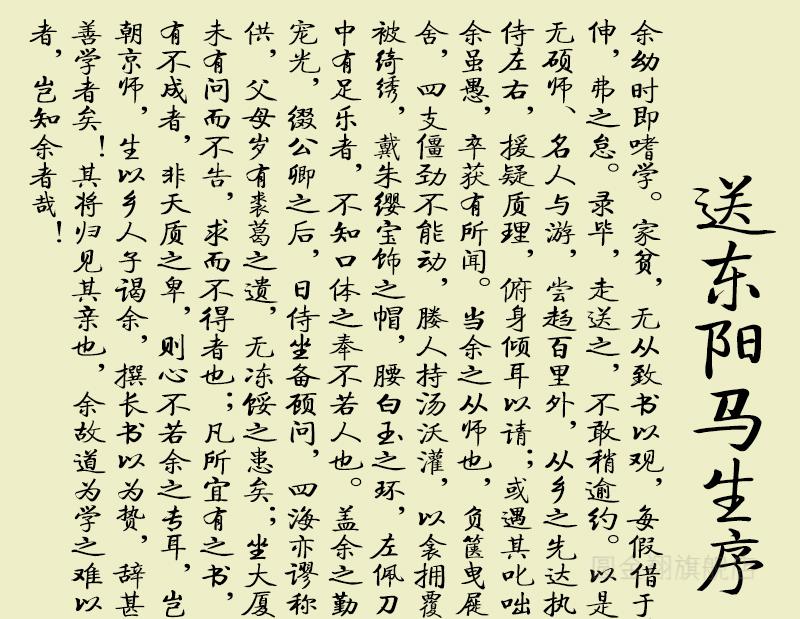 送东阳马生序
余幼时即嗜学。家贫，无从致书以观，每假借于
伸，弗之怠。录毕，走送之，不敢稍逾约。以是
无硕师、名人与游，尝趋百里外，从乡之先达执
侍左右，援疑质理，俯身倾耳以请；或遇其叱咄
余虽愚，卒获有所闻。当余之从师也，负箧曳屣
舍，四支僵劲不能动，媵人持汤沃灌，以衾拥覆
被绮绣，戴朱缨宝饰之帽，腰白玉之环，左佩刀
中有足乐者，不知口体之奉不若人也。盖余之勤
宠光，缀公卿之后，日侍坐备顾问，四海亦谬称
供，父母岁有裘葛之遗，无冻馁之患矣；坐大厦
未有问而不告，求而不得者也；凡所宜有之书，
有不成者，非天质之卑，则心不若余之专耳，岂
朝京师，生以乡人子谒余，撰长书以为贽，辞甚
善学者矣！其将归见其亲也，余故道为学之难以
者，岂知余者哉！